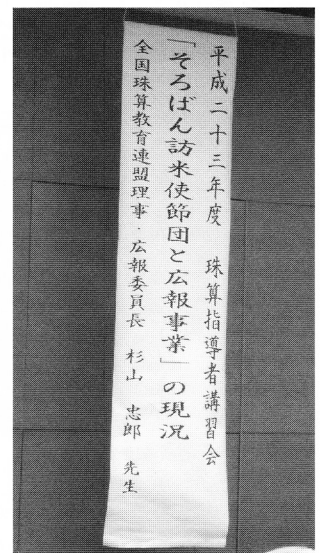 平成二十三年度　珠算指導者講習会
「そろばん訪米使節団と広報事業」の現況
全国珠算教育連盟理事・広報委員長　杉山　忠郎　先生